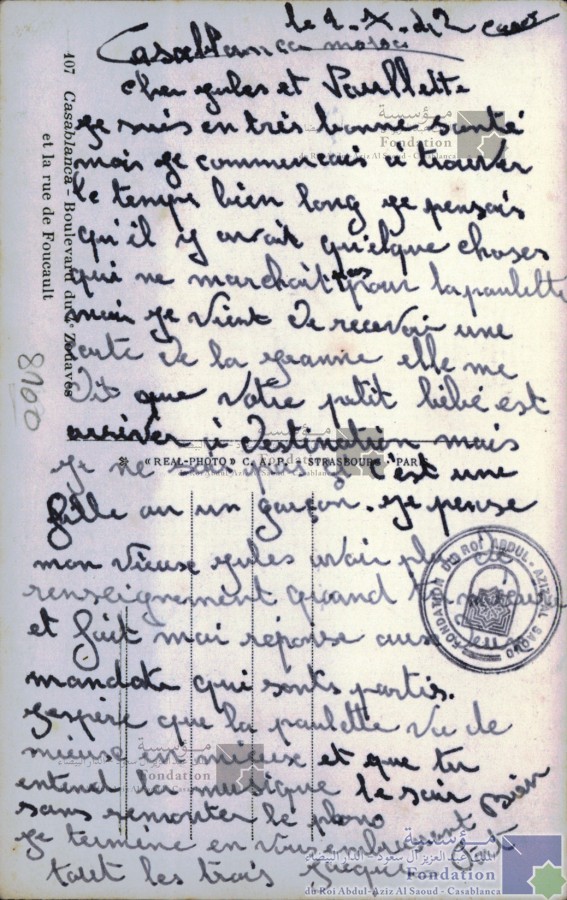 le 1. X. 42
Casablanca maroc
Cher gules et Paullette
ge suis en très bonne santé
mais ge commencais à trouver
le temps bien long ge pensais
qu'il y avait quelque choses
qui ne marchait pas pour la paulette
mais ge vient de recevoir une
carte de la geanne elle me
dit que votre petit bébé est
arriver à destination mais
ge ne sais pas si c'est une
fille ou un garçon. ge pense
mon vieuse gules avoir plus
renseignement quand
et fait moi réponse aux
mandats qui sonts partis.
gespère que la paulette va de
mieuse en mieuse et que tu
entend la musique le soir
sans remonter le phono
ge termine en vous embrassant Bien
tout les trois
407 Casablanca - Boulevard du 4e Zouaves
et la rue de Foucault
8100
« REAL-PHOTO » C. A. P. - STRASBOURG - PARIS
FONDATION DU ROI ABDUL-AZIZ AL SAOUD
مؤسسة
الملك عبد العزيز آل سعود - الدار البيضاء
Fondation
du Roi Abdul-Aziz Al Saoud - Casablanca